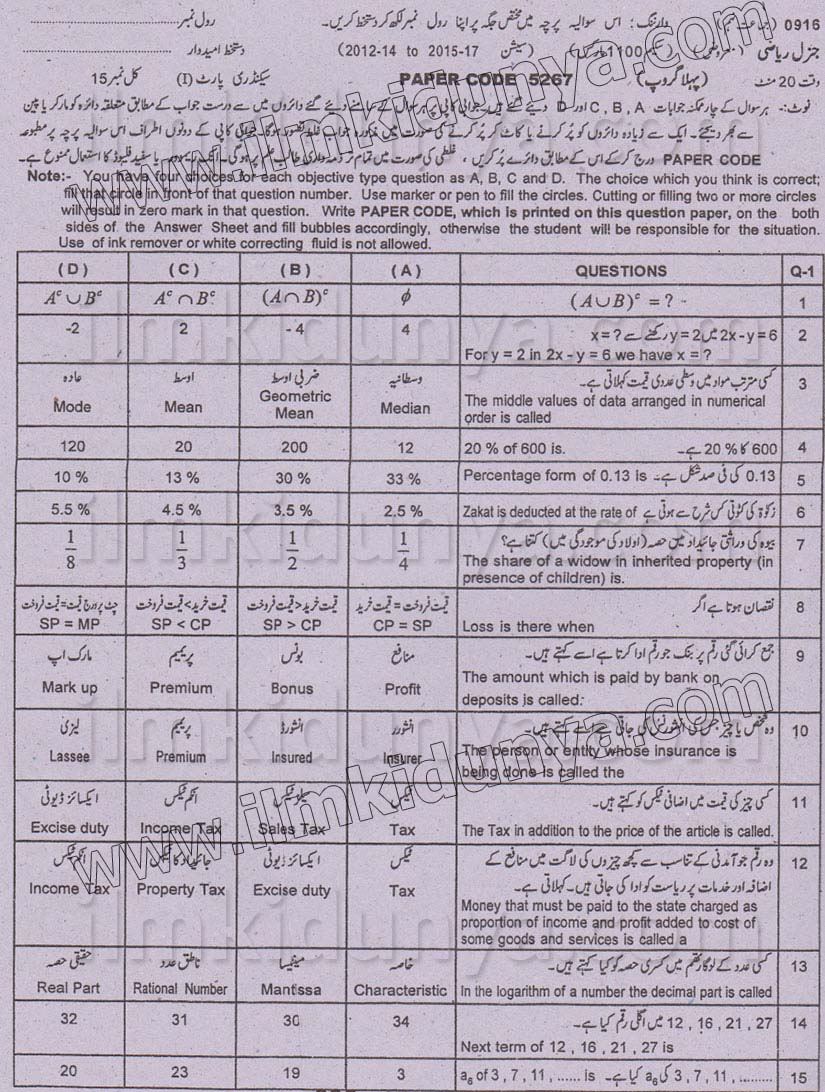 0916 (جماعت نہم) وارننگ: اس سوالیہ پرچہ میں مختص جگہ پر اپنا رول نمبر لکھ کر دستخط کریں۔ رول نمبر
جنرل ریاضی (معروضی) (سکیم 1100 مارکس) (سیشن 2012-14 to 2015-17) دستخط امیدوار
وقت 20 منٹ (پہلا گروپ) PAPER CODE 5267 سیکنڈری پارٹ (I) کل نمبر 15
نوٹ:- ہر سوال کے چار ممکنہ جوابات C , B , A اور D دیئے گئے ہیں۔ جوابی کاپی پر ہر سوال کے سامنے دیئے گئے دائروں میں سے درست جواب کے مطابق متعلقہ دائرہ کو مارکر یا پین
سے بھر دیجئے۔ ایک سے زیادہ دائروں کو پُر کرنے یا کاٹ کر پُر کرنے کی صورت میں مذکورہ جواب غلط تصور ہوگا۔ جوابی کاپی کے دونوں اطراف اس سوالیہ پرچہ پر مطبوعہ
PAPER CODE درج کرکے اس کے مطابق دائرے پُر کریں، غلطی کی صورت میں تمام تر ذمہ داری طالب علم پر ہوگی۔ انک ریموور یا سفید فلیوڈ کا استعمال ممنوع ہے۔
Note:- You have four choices for each objective type question as A, B, C and D. The choice which you think is correct;
fill that circle in front of that question number. Use marker or pen to fill the circles. Cutting or filling two or more circles
will result in zero mark in that question. Write PAPER CODE, which is printed on this question paper, on the both
sides of the Answer Sheet and fill bubbles accordingly, otherwise the student will be responsible for the situation.
Use of ink remover or white correcting fluid is not allowed.
(D) (C) (B) (A) QUESTIONS Q-1
Aᶜ ∪ Bᶜ Aᶜ ∩ Bᶜ (A∩B)ᶜ ϕ (A∪B)ᶜ = ? 1
-2 2 -4 4 2x - y=6 میں y=2 رکھنے سے x=? 2
For y = 2 in 2x - y = 6 we have x = ?
عادہ اوسط ضربی اوسط وسطانیہ کسی مرتب مواد میں وسطی عددی قیمت کہلاتی ہے۔ 3
Mode Mean Geometric Mean Median The middle values of data arranged in numerical
order is called
120 20 200 12 20 % of 600 is. 600 کا 20 % ہے۔ 4
10 % 13 % 30 % 33 % Percentage form of 0.13 is 0.13 کی فی صد شکل ہے۔ 5
5.5 % 4.5 % 3.5 % 2.5 % Zakat is deducted at the rate of زکوٰۃ کی کٹوتی کس شرح سے ہوتی ہے 6
1/8 1/3 1/2 1/4 بیوہ کی وراثتی جائیداد میں حصہ (اولاد کی موجودگی میں) کتنا ہے؟ 7
The share of a widow in inherited property (in
presence of children) is.
چٹ پر درج قیمت=قیمت فروخت قیمت خرید>قیمت فروخت قیمت خرید<قیمت فروخت قیمت فروخت = قیمت خرید نقصان ہوتا ہے اگر 8
SP = MP SP < CP SP > CP CP = SP Loss is there when
مارک اپ پریمیم بونس منافع جمع کرائی گئی رقم پر بنک جو رقم ادا کرتا ہے اسے کہتے ہیں۔ 9
Mark up Premium Bonus Profit The amount which is paid by bank on
deposits is called:
لیزی پریمیم انشورڈ انشورر وہ شخص یا چیز جس کی انشورنس کی جاتی ہے اسے کہتے ہیں 10
Lassee Premium Insured Insurer The person or entity whose insurance is
being done is called the
ایکسائز ڈیوٹی انکم ٹیکس سیلز ٹیکس ٹیکس کسی چیز کی قیمت میں اضافی ٹیکس کو کہتے ہیں۔ 11
Excise duty Income Tax Sales Tax Tax The Tax in addition to the price of the article is called.
انکم ٹیکس جائیداد کا ٹیکس ایکسائز ڈیوٹی ٹیکس وہ رقم جو آمدنی کے تناسب سے کچھ چیزوں کی لاگت میں منافع کے 12
اضافہ اور خدمات پر ریاست کو ادا کی جاتی ہیں۔ کہلاتی ہے۔
Income Tax Property Tax Excise duty Tax Money that must be paid to the state charged as
proportion of income and profit added to cost of
some goods and services is called a
حقیقی حصہ ناطق عدد مینٹیسا خاصہ کسی عدد کے لوگارتھم میں کسری حصہ کو کیا کہتے ہیں۔ 13
Real Part Rational Number Mantissa Characteristic In the logarithm of a number the decimal part is called
32 31 30 34 12 , 16 , 21 , 27 میں اگلی رقم کیا ہے۔ 14
Next term of 12 , 16 , 21 , 27 is
20 23 19 3 a₆ of 3 , 7 , 11 , ...... is 3 , 7 , 11 , ......... کی a₆ کیا ہے۔ 15
www.ilmkidunya.com
www.ilmkidunya.com
www.ilmkidunya.com
ilmkidunya.com
ilmkidunya.com
ilmkidunya.com
ilmkidunya.com